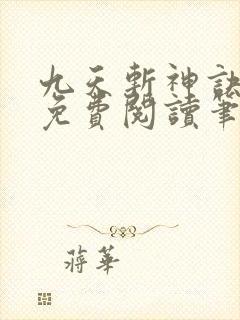 九天斬神訣
免費閱讀筆
蔣華